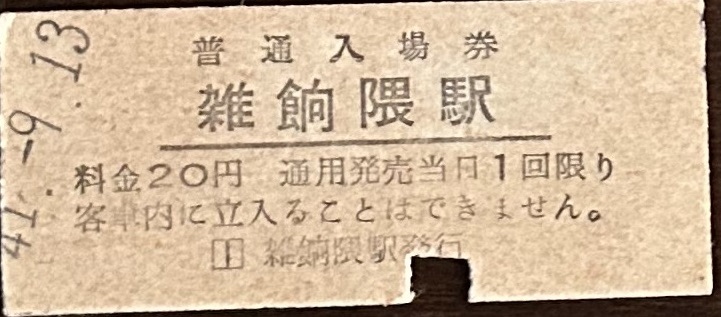 普通入場券
雑餉隈駅
料金20円 通用発売当日1回限り
客車内に立入ることはできません。
□1 雑餉隈駅発行
41.-9.13